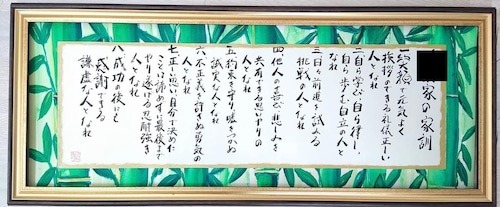 家の家訓
一 笑顔で元気よく
挨拶のできる礼儀正しい
人となれ
二 自ら学び自ら律し、
自ら歩む自立の人と
なれ
三 日々前進を試みる
挑戦の人となれ
四 他人の喜び悲しみを
共有できる思いやりの
人となれ
五 約束を守り、嘘をつかぬ
誠実な人となれ
六 不正義を許さぬ勇気の
人となれ
七 正しい思い自分で決めた
ことは諦めずに最後まで
やり遂げる忍耐強き
人となれ
八 成功の後にも
感謝できる
謙虚な人となれ